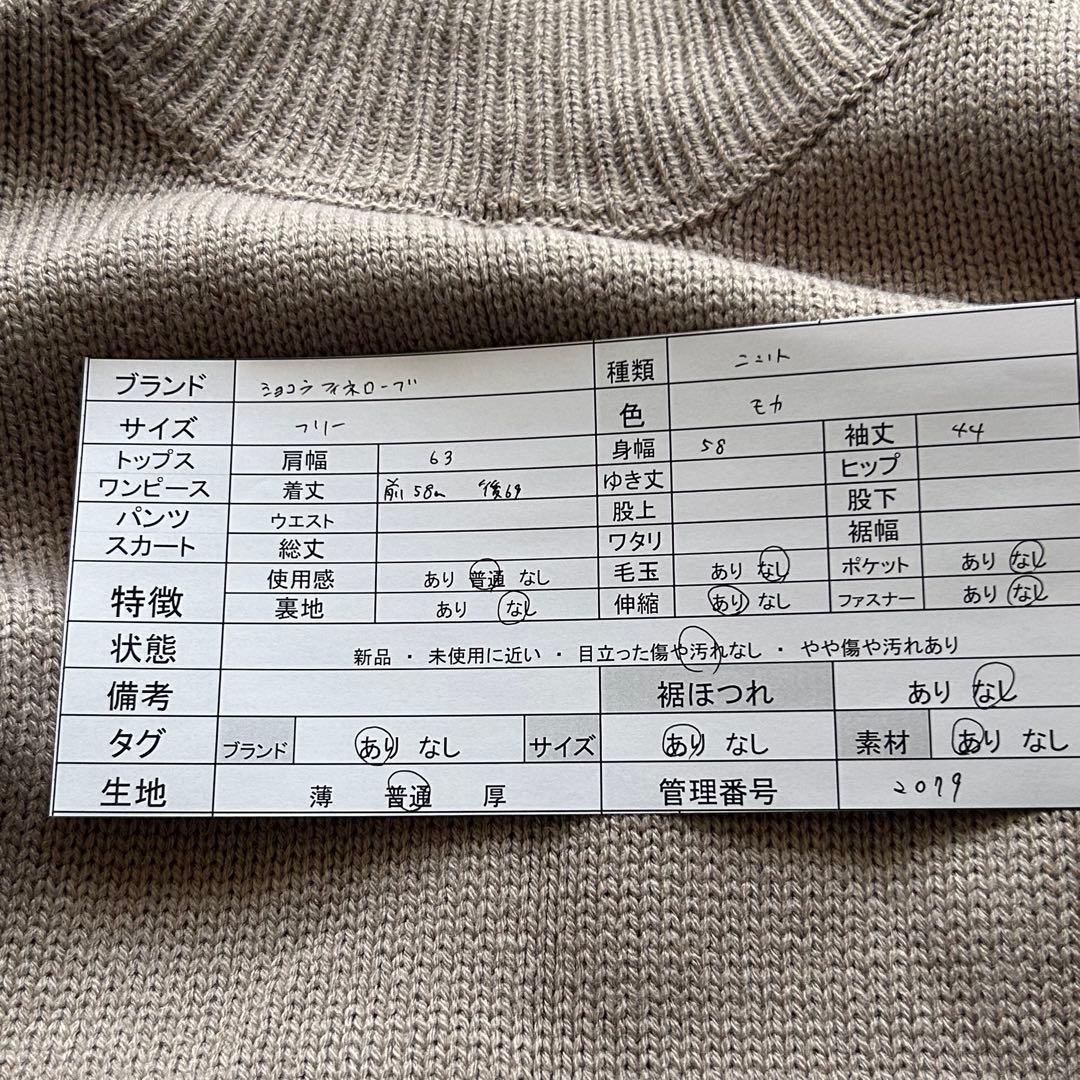 ブランド ショコラフィネローブ 種類 ニット
サイズ フリー 色 モカ
トップス 肩幅 63 身幅 58 袖丈 44
ワンピース 着丈 前58㎝ 後69 ゆき丈 ヒップ
パンツ ウエスト 股上 股下
スカート 総丈 ワタリ 裾幅
特徴 使用感 あり 普通 なし 毛玉 あり なし ポケット あり なし
裏地 あり なし 伸縮 あり なし ファスナー あり なし
状態 新品 ・ 未使用に近い ・ 目立った傷や汚れなし ・ やや傷や汚れあり
備考 裾ほつれ あり なし
タグ ブランド あり なし サイズ あり なし 素材 あり なし
生地 薄 普通 厚 管理番号 2079